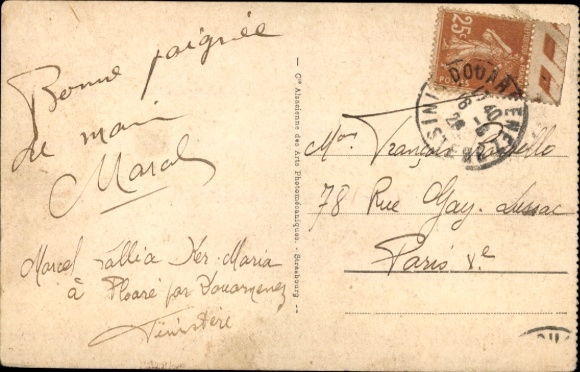 Bonne poignée
de main
Marcel
Marcel Ker-Maria
à Ploaré par Douarnenez
Finistère
Cie Alsacienne des Arts Photomécaniques. - Strasbourg
25c
DOUARNENEZ
FINISTERE
François
78 Rue Gay-Lussac
Paris Ve